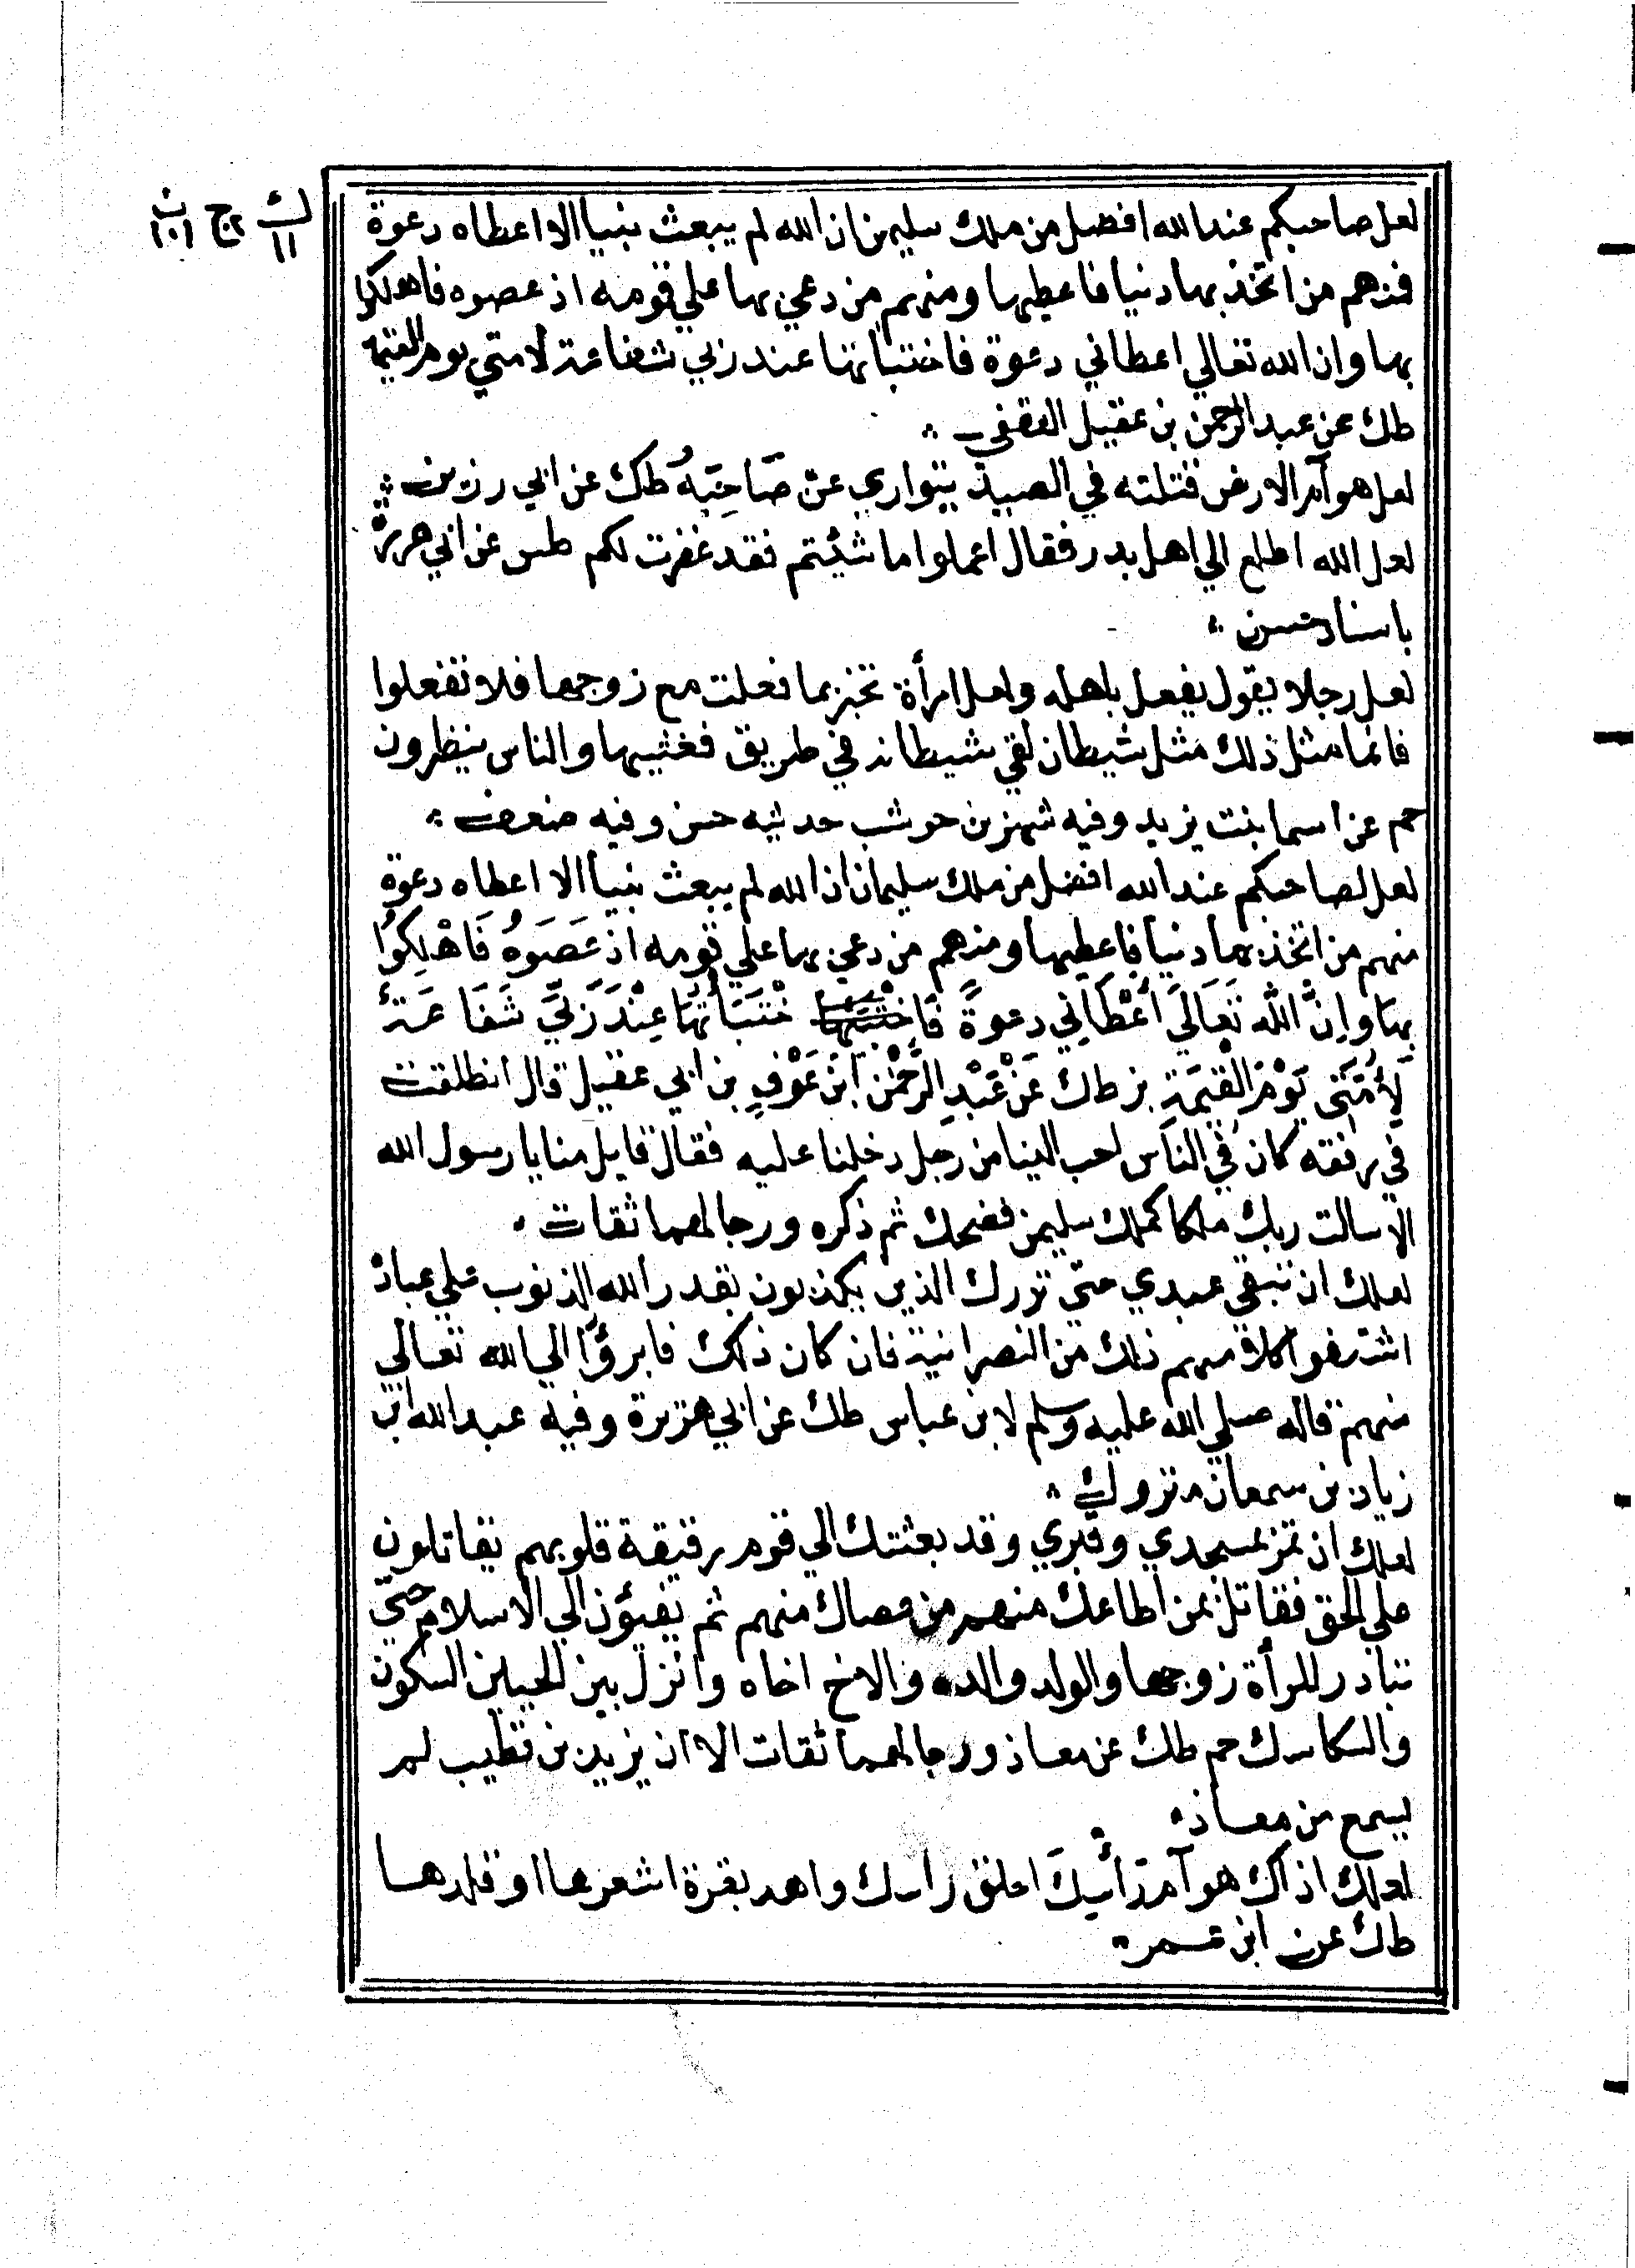 لعل صاحبكم عند الله افضل من ملك سليمن ان الله لم يبعث نبيا الا اعطاه دعوة
فمنهم من اتخذ بها دنيا فاعطيها ومنهم من دعي بها علي قومه اذ عصوه فاهلكوا
بها وان الله تعالي اعطاني دعوة فاختباتها عند ربي شفاعة لامتي يوم القيمة
طك عن عبد الرحمن بن عقيل الثقفي
لعل هو آم الارض قتلته في الصيد يتواري عن صَاحِبَهُ طك عن ابي رزين
لعل الله اطلع الي اهل بدر فقال اعملوا ما شئتم فقد غفرت لكم طس عن ابي هريرة
باسناد حسن
لعل رجلا يقول يفعل باهله ولعل امرأة تخبر بما فعلت مع زوجها فلا تفعلوا
فانما مثل ذلك مثل شيطان لقي شيطانه في طريق فغشيها والناس ينظرون
حم عن اسما بنت يزيد وفيه شهر بن حوشب حديثه حسن وفيه ضعف
لعل لصاحبكم عند الله افضل من ملك سليمان ان الله لم يبعث نبيا الا اعطاه دعوة
منهم من اتخذ بها دنيا فاعطيها ومنهم من دعي بها علي قومه اذ عَصَوهُ فَاهْلِكوُا
بها واِنَّ اللّٰه تَعَالَي أَعْطَاني دعوةً فَاخْتَبَتها خْتَبَاتُهَا عِنْدَ رَبِّي شَفَا عَة
لِأُمَّتي يَوْمَ الْقِيمَةِ بز طك عَنْ عَبْدِ الرَّحْمٰن ابْن عَوْفٍ بن ابي عقيل قال انطلقت
في رفقه كان في الناس احب الينا من رجل دخلنا عليه فقال قايل منا يا رسول الله
الا سالت ربك ملكا كملك سليمن فضحك ثم ذكره ورجالهما ثقات
لعلك ان تبقي عبدي حتي تدرك الذين يكذبون بقدر الله الذنوب علي عباد
اشتقوا كلامهم ذلك من النصرانية فان كان ذلك فابرؤا الي الله تعالي
منهم قاله صلي الله عليه وسلم لابن عباس طك عن ابي هريرة وفيه عبد الله بن
زياد بن سمعان متروك
لعلك ان تمر بمسجدي وقبري وقد بعثتك الي قوم رقيقة قلوبهم يقاتلون
علي الحق فقاتل بمن اطاعك منهم من عصاك منهم ثم يفيؤن الي الاسلام حتي
تبادر المرأة زوجها والولد والده والاخ اخاه وانزل بين الحيين السكون
والسكاسك حم طك عن معاذ ورجالهما ثقات الا ان يزيد بن قطيب لم
يسمع من معاذ
لعلك اذاك هوآم رَأسِكَ احلق راسك واهد بقرة اشعرها او قلدها
طك عن ابن عمر
ك ج ن
١١ ٢ ١٠١